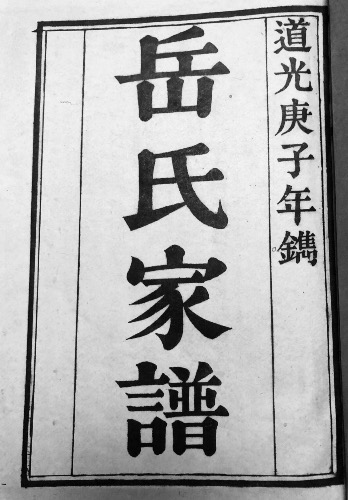 道光庚子年鐫
岳氏家譜